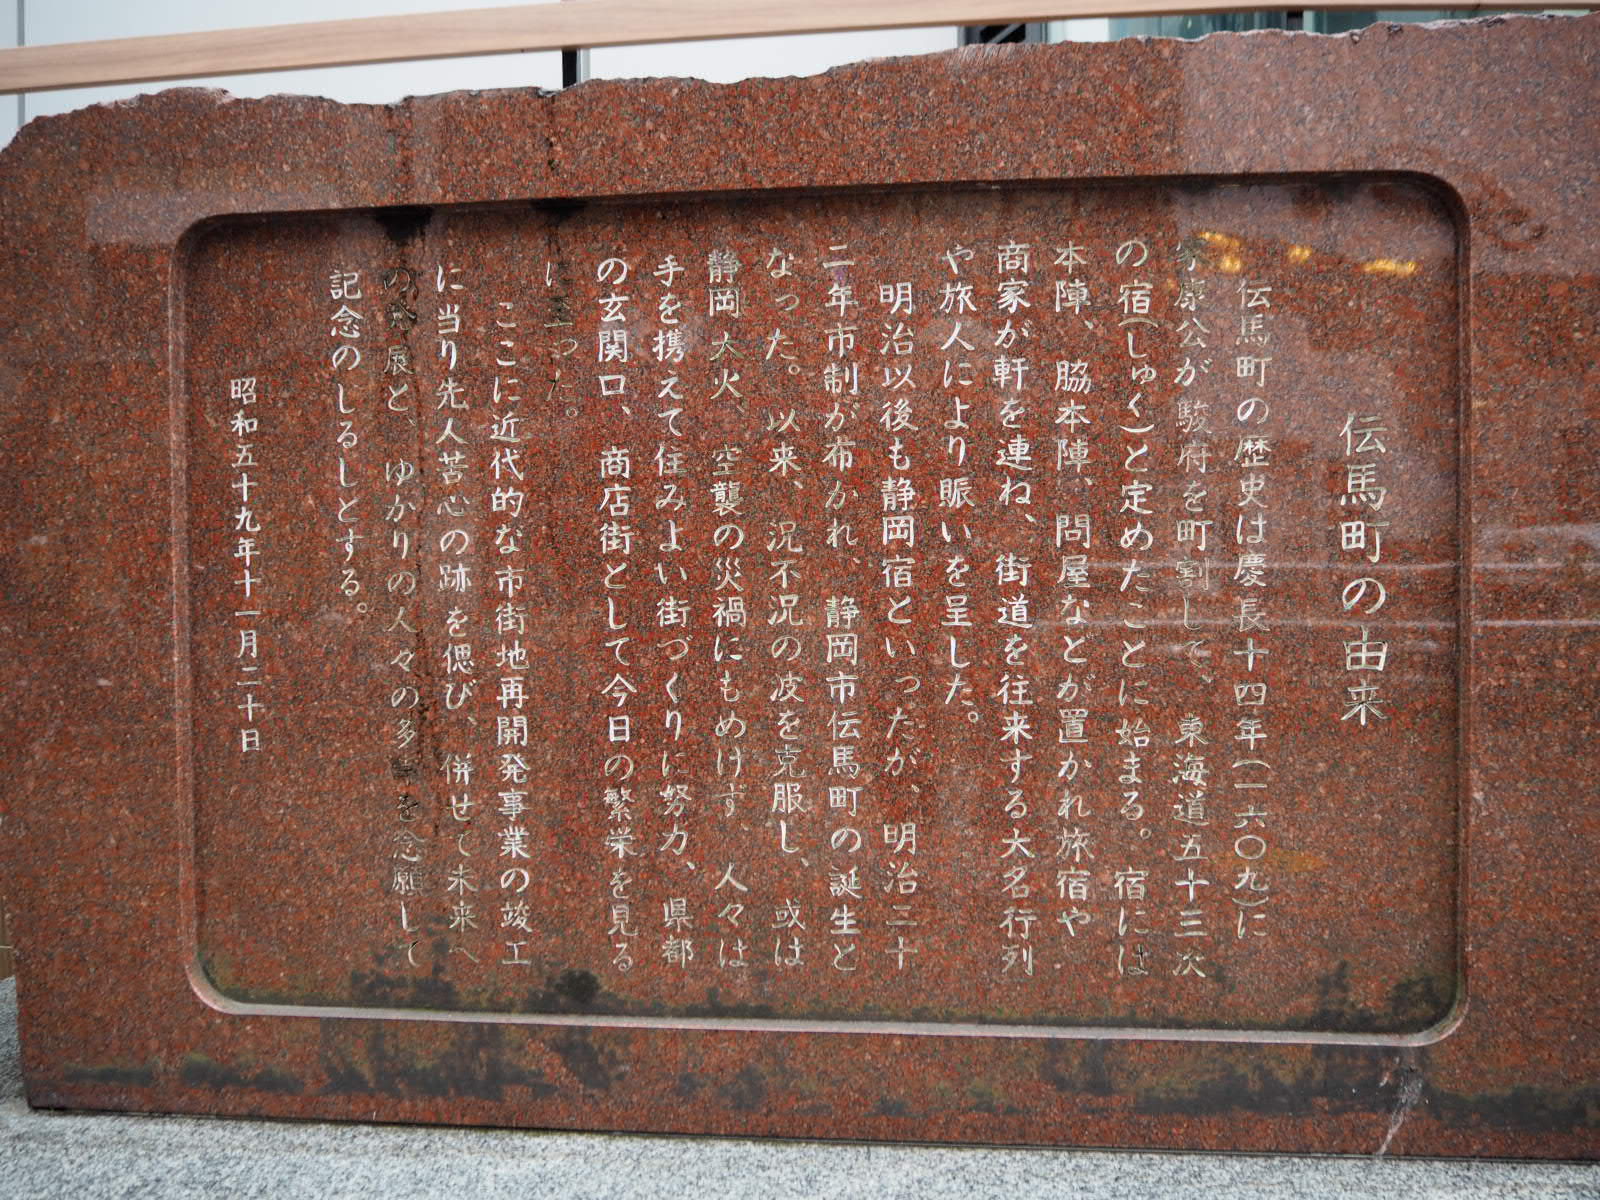 伝馬町の由来
伝馬町の歴史は慶長十四年(一六〇九)に
家康公が駿府を町割して、東海道五十三次
の宿(しゅく)と定めたことに始まる。宿には
本陣、脇本陣、問屋などが置かれ旅宿や
商家が軒を連ね、街道を往来する大名行列
や旅人により賑いを呈した。
明治以後も静岡宿といったが、明治二十
二年市制が布かれ、静岡市伝馬町の誕生と
なった。以来、況不況の波を克服し、或は
静岡大火、空襲の災禍にもめけず、人々は
手を携えて住みよい街づくりに努力、県都
の玄関口、商店街として今日の繁栄を見る
に至った。
ここに近代的な市街地再開発事業の竣工
に当り先人苦心の跡を偲び、併せて未来へ
の発展と、ゆかりの人々の多幸を念願して
記念のしるしとする。
昭和五十九年十一月二十日